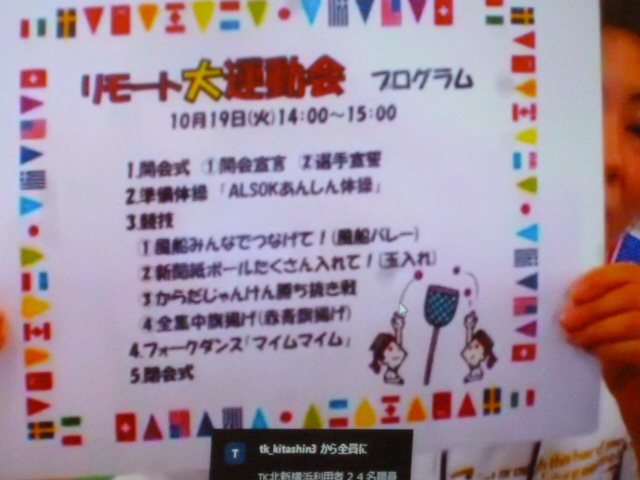 リモート大運動会 プログラム
10月19日(火)14:00～15:00
1.開会式 ①開会宣言 ②選手宣誓
2.準備体操「ALSOKあんしん体操」
3.競技
①風船みんなでつなげて！(風船バレー)
②新聞紙ボールたくさん入れて！(玉入れ)
③からだじゃんけん勝ち抜き戦
④全集中旗揚げ(赤青旗揚げ)
4.フォークダンス「マイムマイム」
5.閉会式
T tk_kitashin3 から全員に
TK北新横浜利用者24名職員